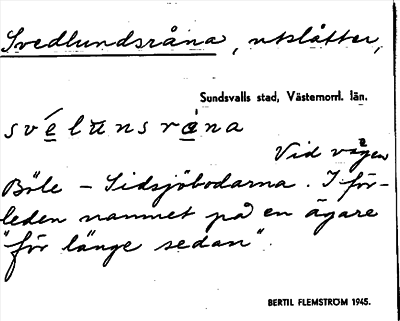 Svedlundsråna, utslåtter,
Sundsvalls stad, Västernorrl. län.
své̱lu̅nsrὰ̱na
Vid vägen
Böle – Sidsjöbodarna. I för-
leden namnet på en ägare
"för länge sedan".
BERTIL FLEMSTRÖM 1945.